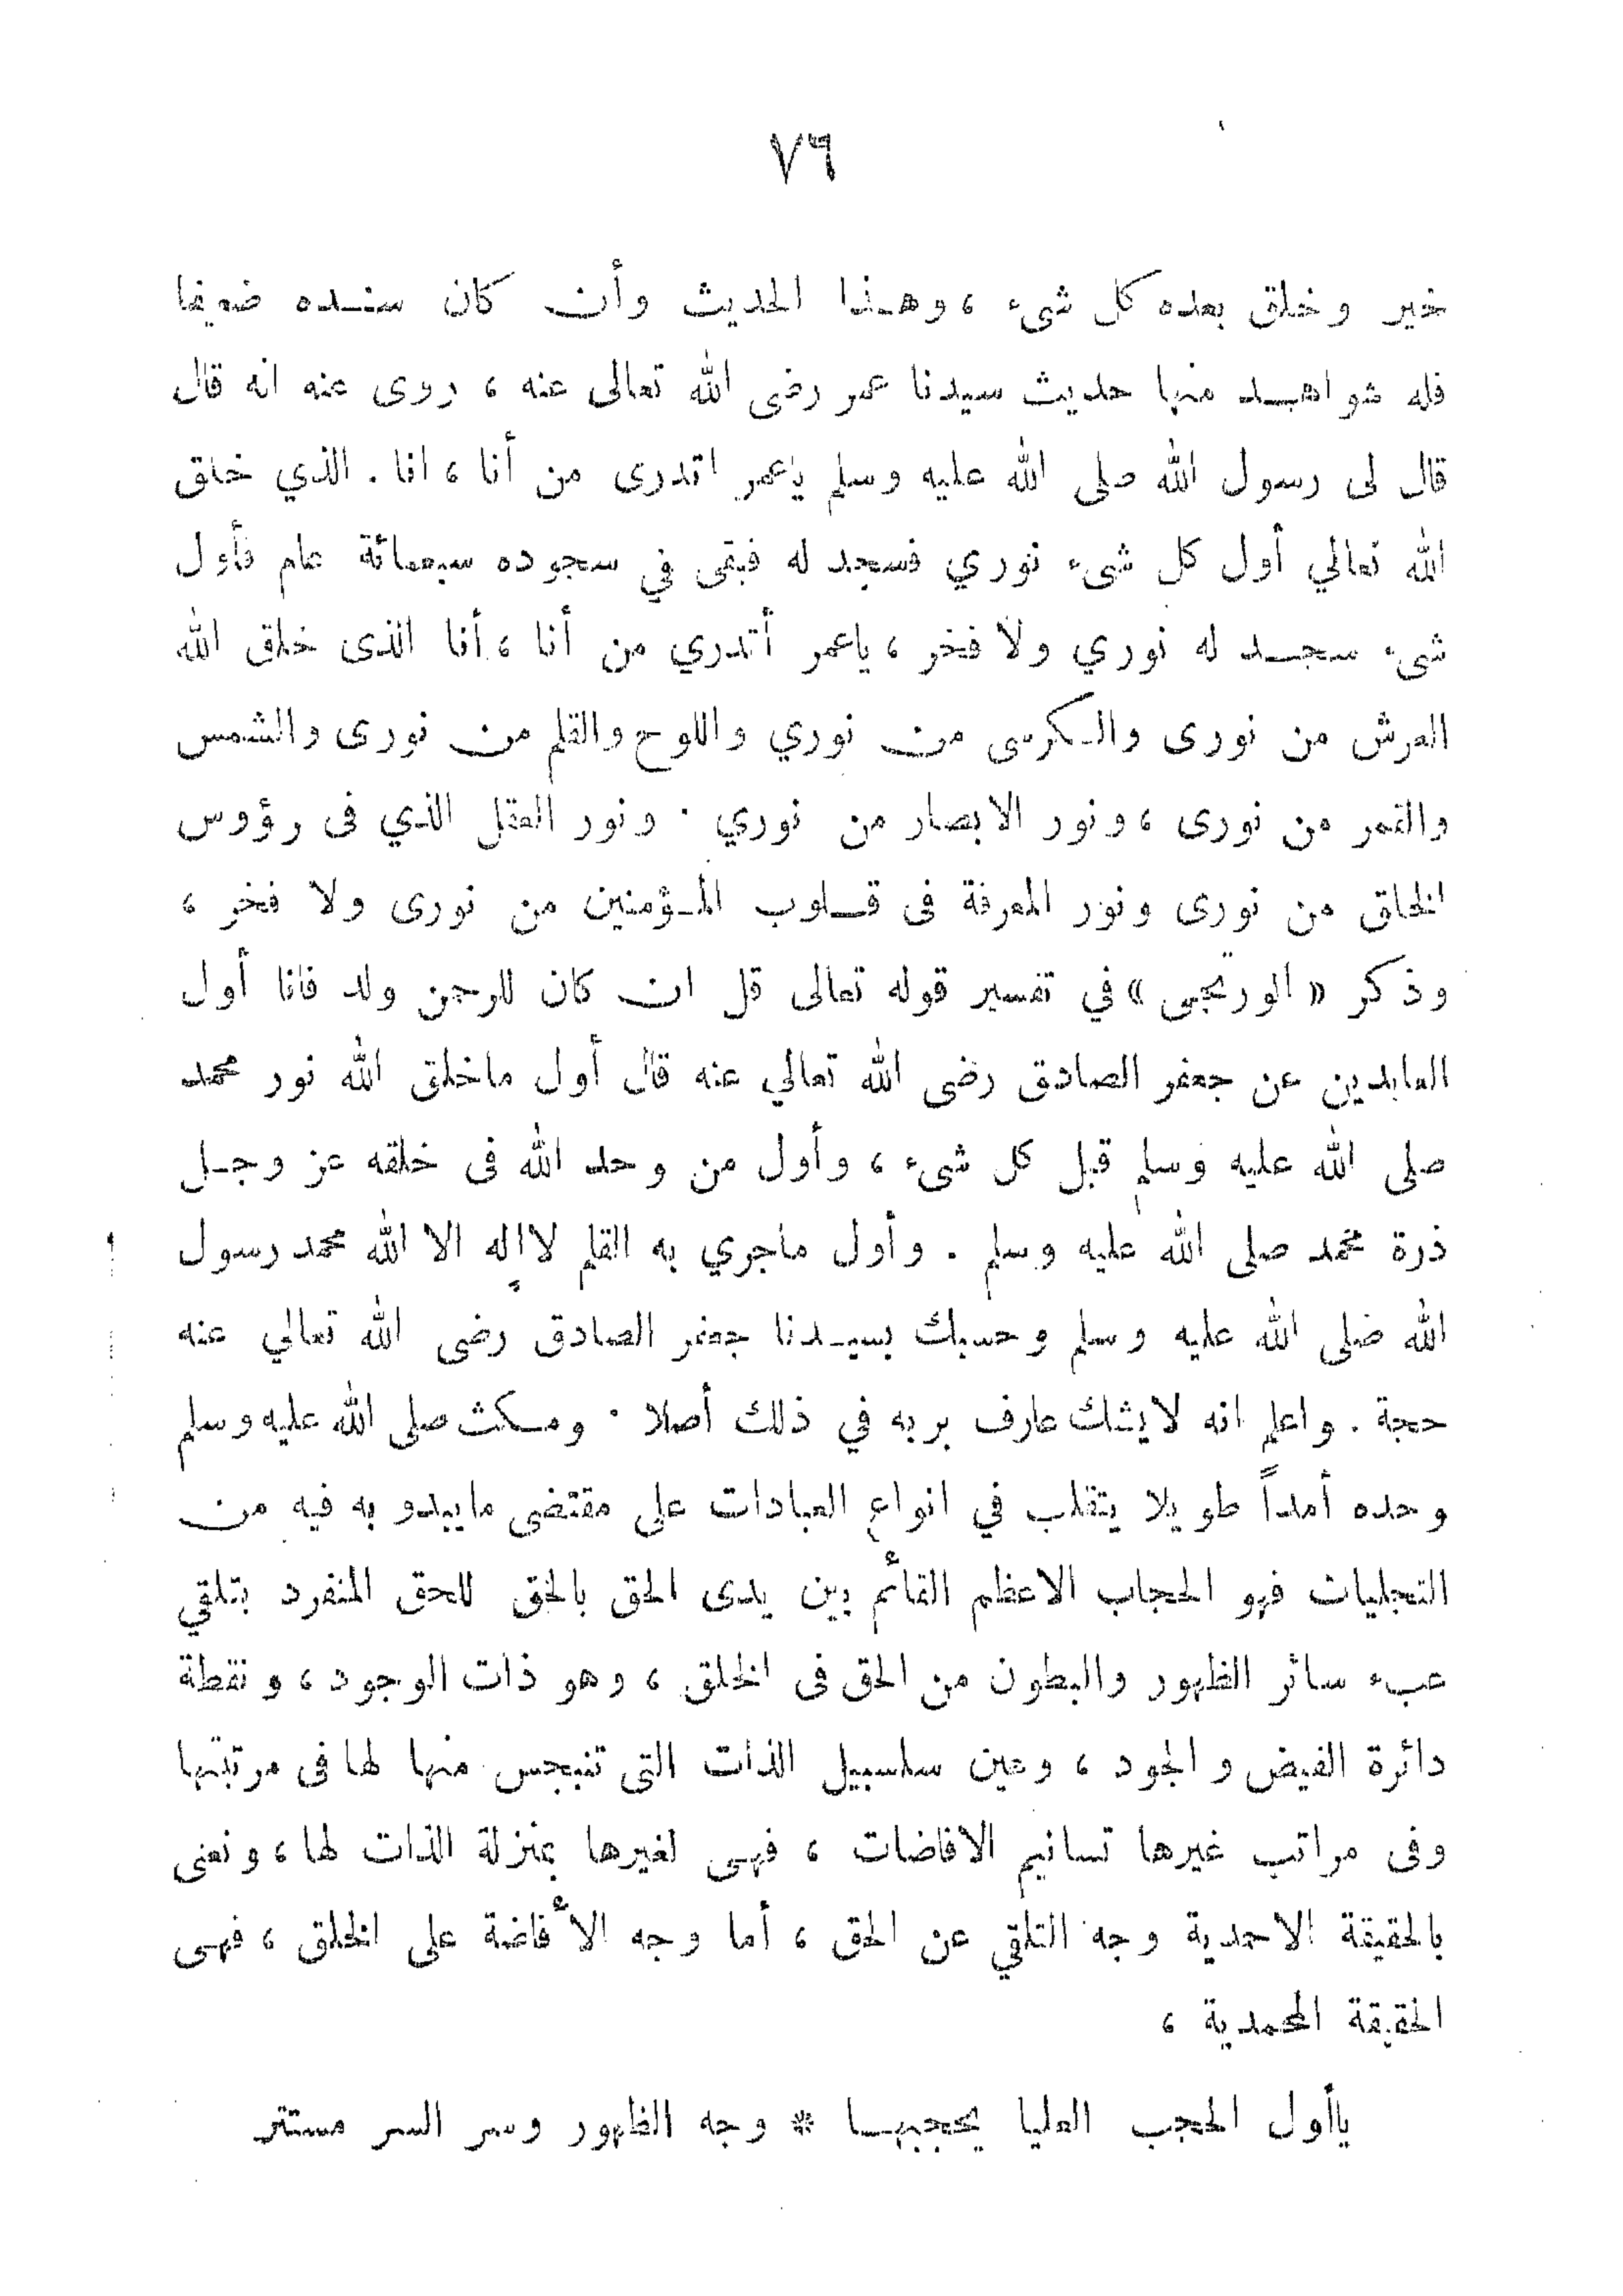 ٧٩
خير وخلق بعده كل شىء ، وهذا الحديث وأن كان سنده ضعيفا
فله شواهد منها حديث سيدنا عمر رضى الله تعالى عنه ، روى عنه انه قال
قال لى رسول الله صلى الله عليه وسلم ياعمر اتدرى من أنا ، انا . الذي خلق
الله تعالي أول كل شىء نوري فسجد له فبقى في سجوده سبعمائة عام فأول
شىء سجد له نوري ولا فخر ، ياعمر أتدري من أنا ، أنا الذى خلق الله
العرش من نورى والكرسى من نوري واللوح والقلم من نورى والشمس
والقمر من نورى ، ونور الابصار من نوري . ونور العقل الذي فى رؤوس
الخلق من نورى ونور المعرفة فى قلوب المؤمنين من نورى ولا فخر ،
وذكر « الورتجبى » في تفسير قوله تعالى قل ان كان للرحمن ولد فانا أول
العابدين عن جعفر الصادق رضى الله تعالي عنه قال أول ماخلق الله نور محمد
صلى الله عليه وسلم قبل كل شىء ، وأول من وحد الله فى خلقه عز وجل
ذرة محمد صلى الله عليه وسلم . وأول ماجري به القلم لاإله الا الله محمد رسول
الله صلى الله عليه وسلم وحسبك بسيدنا جعفر الصادق رضى الله تعالي عنه
حجة . واعلم انه لايشك عارف بربه في ذلك أصلا . ومكث صلى الله عليه وسلم
وحده أمداً طويلا يتقلب في انواع العبادات على مقتضى مايبدو به فيه من
التجليات فهو الحجاب الاعظم القأئم بين يدى الحق بالحق للحق المنفرد بتلقي
عبء سائر الظهور والبطون من الحق فى الخلق ، وهو ذات الوجود ، ونقطة
دائرة الفيض والجود ، وعين سلسبيل الذات التى تنبجس منها لها فى مرتبتها
وفى مراتب غيرها تسانيم الافاضات ، فهى لغيرها بمنزلة الذات لها ، ونعنى
بالحقيقة الاحمدية وجه التلقي عن الحق ، أما وجه الأفاضة على الخلق ، فهى
الحقيقة المحمدية ،
ياأول الحجب العليا يحجبها * وجه الظهور وسر السر مستتر